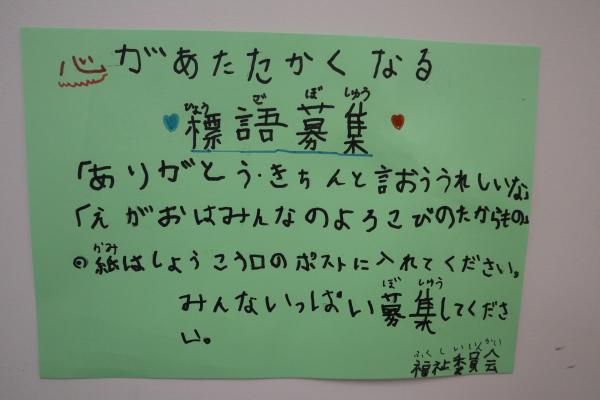 心があたたかくなる
ひょう ご ぼ しゅう
標語募集
「ありがとう・きちんと言おううれしいな」
「えがおはみんなのよろこびのたからもの」
かみ
◎紙はしょうこう口のポストに入れてください。
ぼ しゅう
みんないっぱい募集してくださ
い。
ふくしいいんかい
福祉委員会